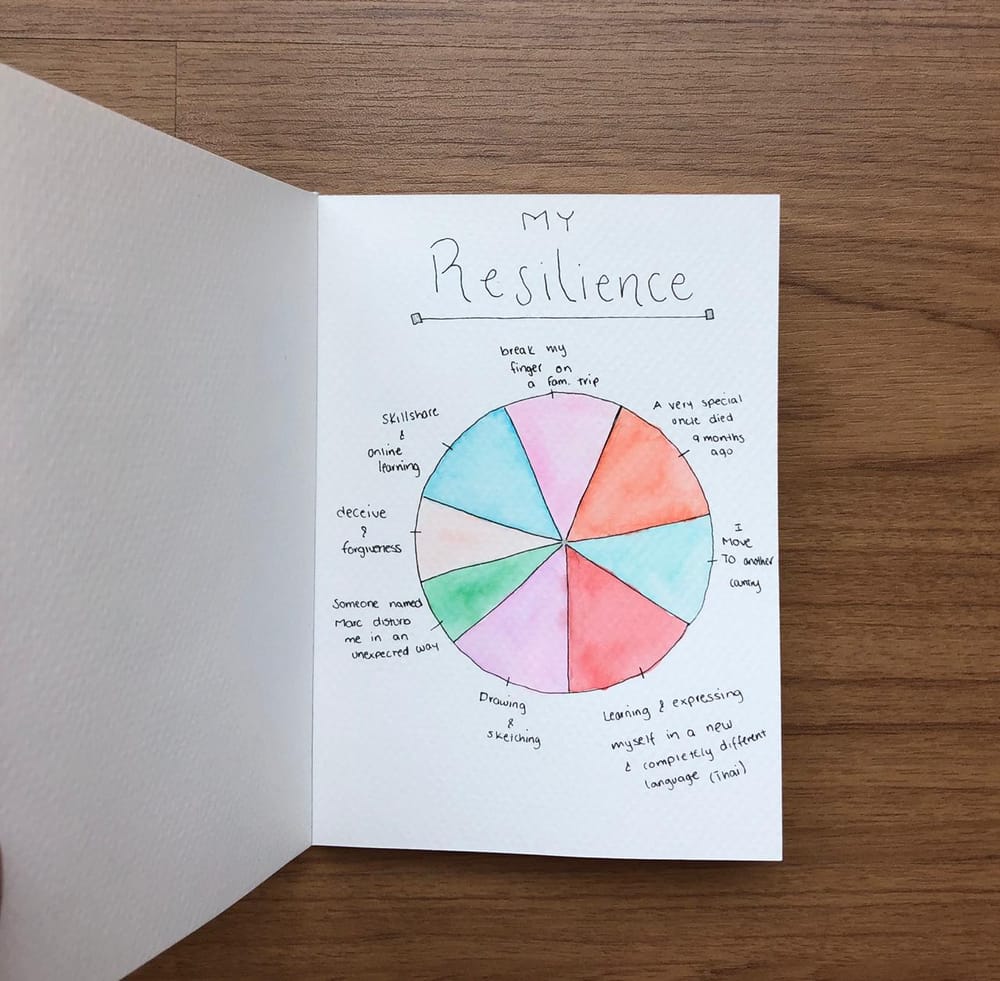 MY
Resilience
break my
finger on
a fam. trip
A very special
uncle died
9 months
ago
I
Move
To another
country
Learning & expressing
myself in a new
& completely different
language (Thai)
Drawing
&
sketching
Someone named
Marc disturb
me in an
unexpected way
deceive
&
forgiveness
Skillshare
&
online
learning